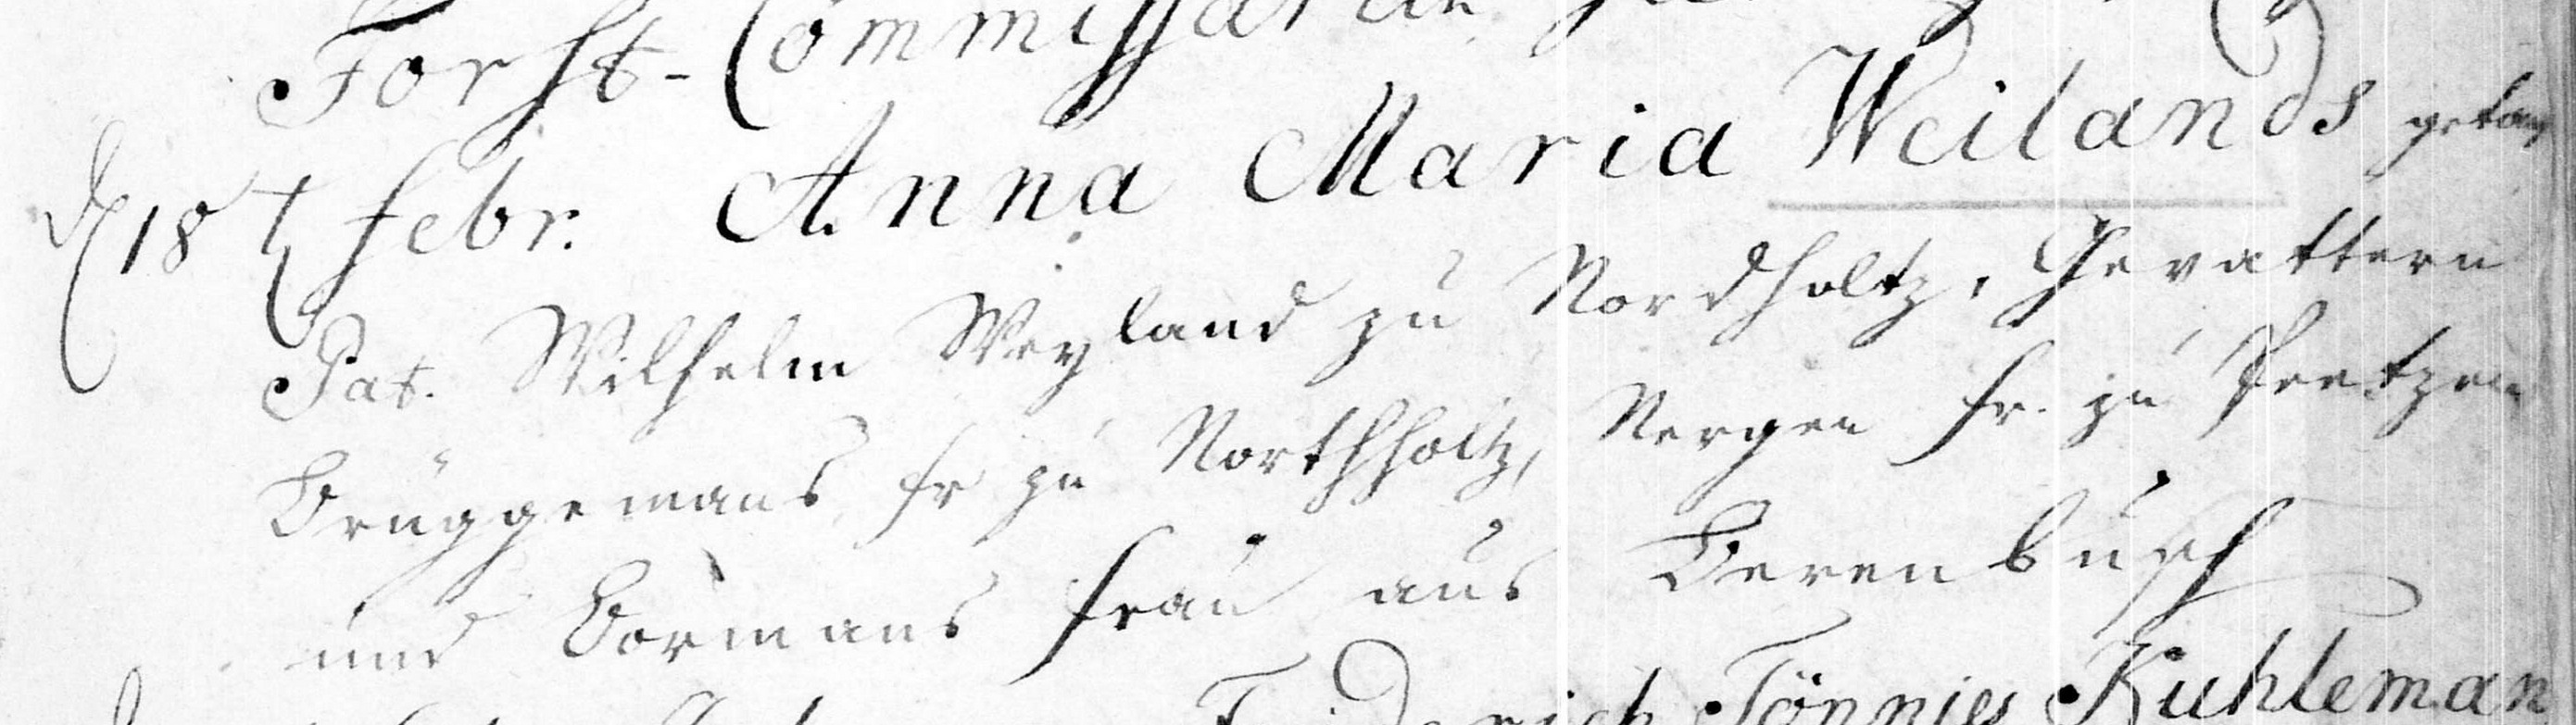 Forst-Commissarin
d 18 t febr. Anna Maria Weilands getauft
Pat. Wilhelm Weyland zu Nordholtz, Gevattern
Brüggemans fr zu Northholtz, Nergen fr. zu Peetzen
und Bormans frau aus Berenbusch
Friderich Tönnies Kuhleman